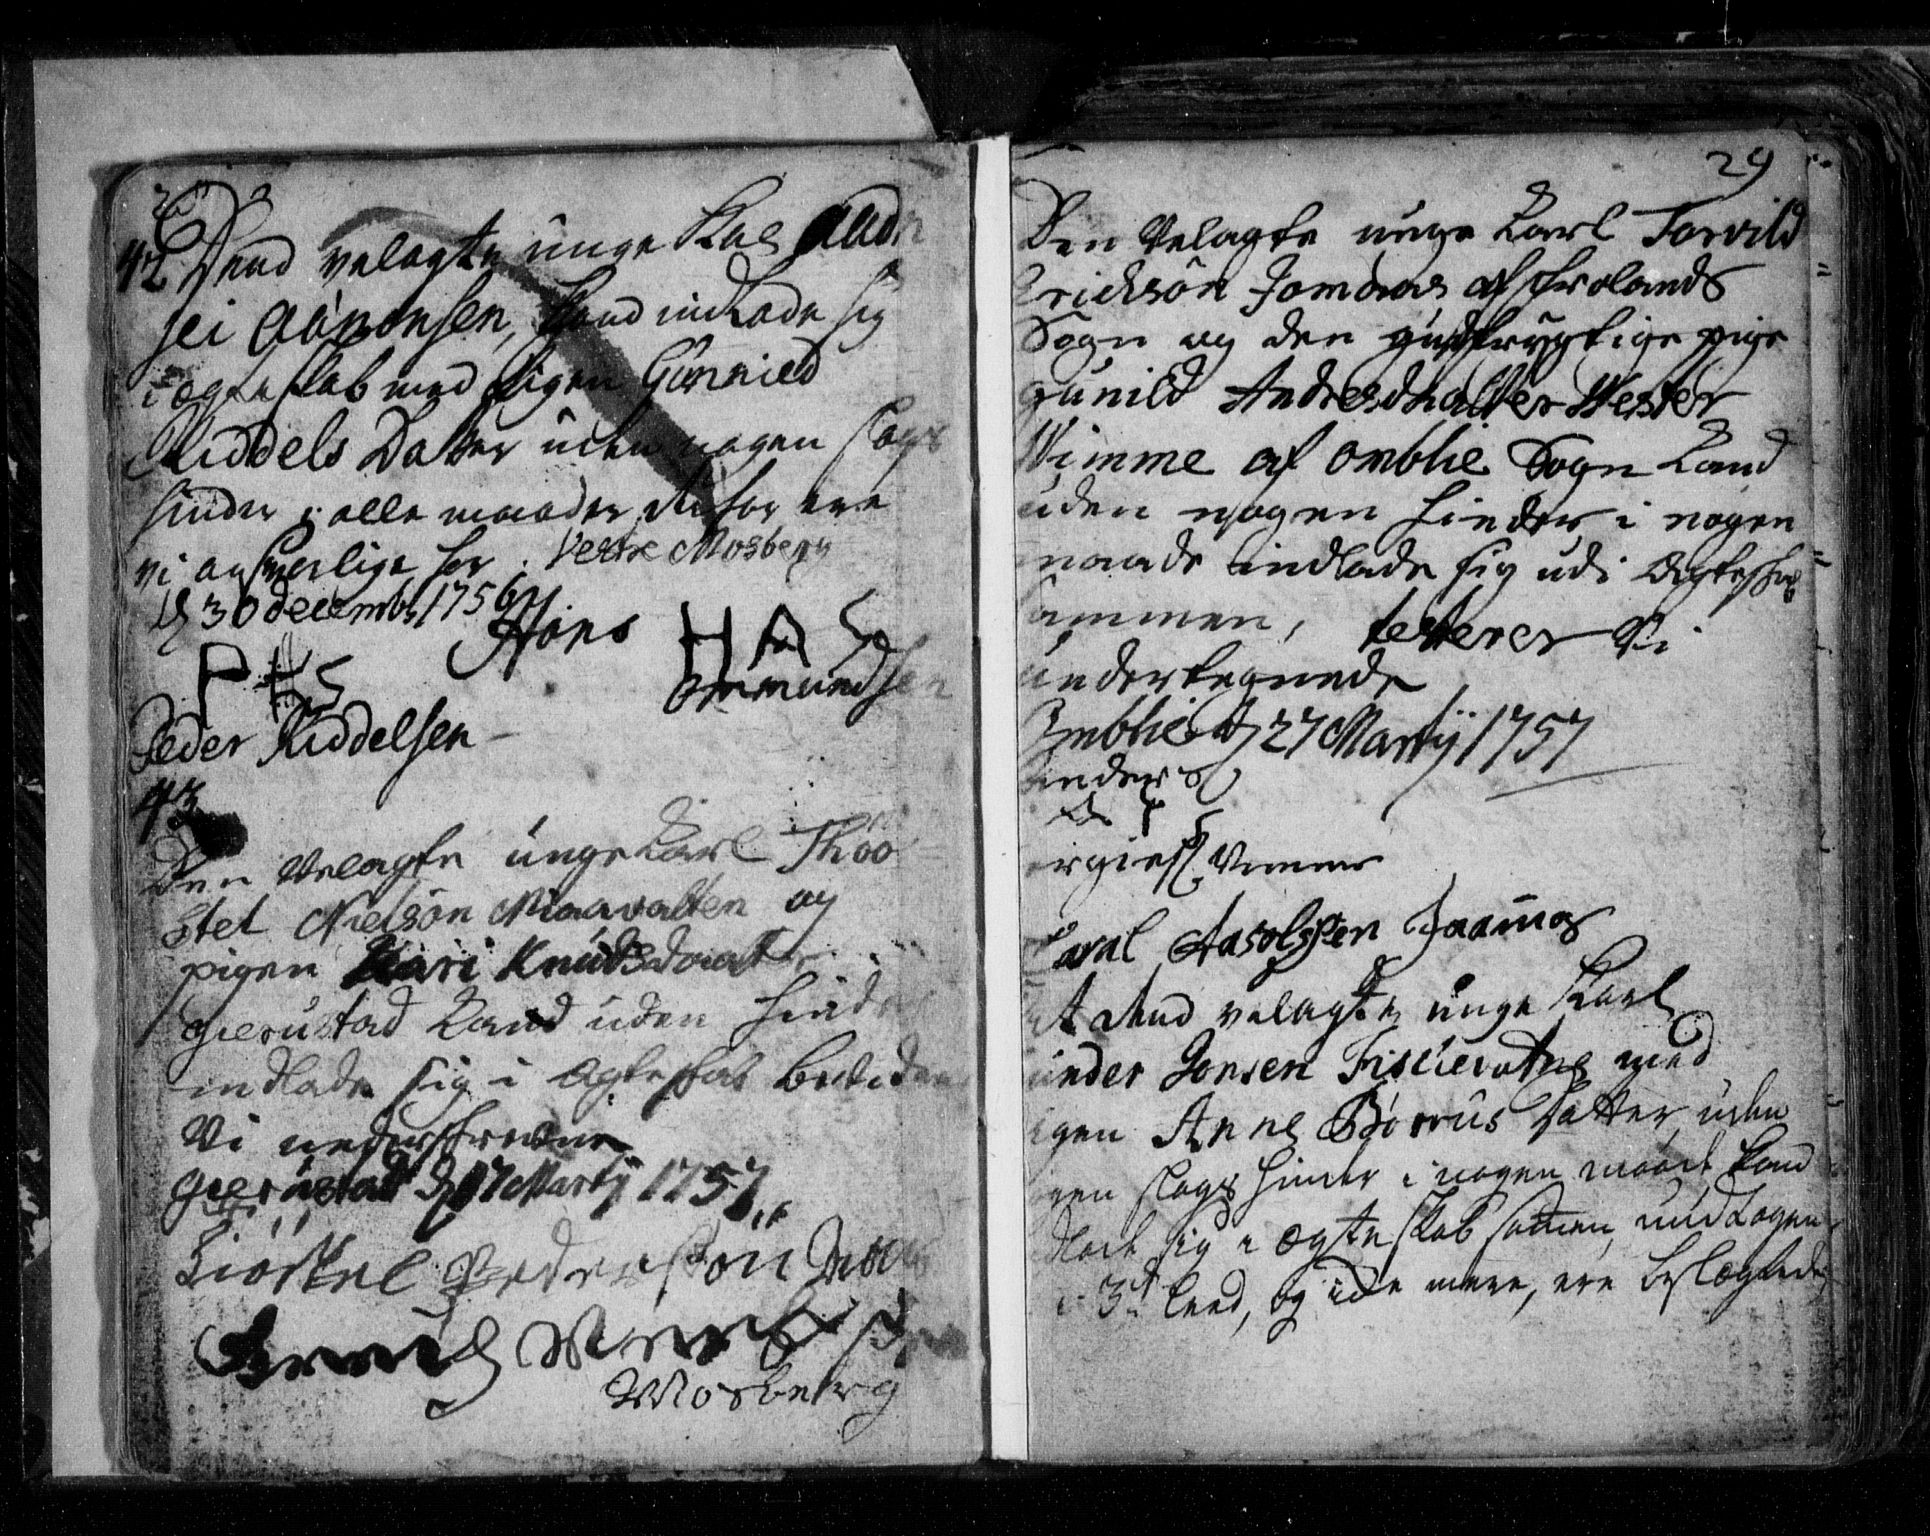 42 Dend velagte unge Karl Andr
sei Aanonsen, Kand indlade sig
i ægteskab med Pigen Gunnild
Kiddels Datter uden nogen slags
hinder i alle maader derfor ere
vi ansvarlige for. Vestre Mosberg
d 30 decembr 1756
Hans HAS
PKS Ommundsen
Peder Kiddelsen
43
Den Velagte unge Karl Thoo
stel Nielson Miaavatten og
pigen Kari Knudsdaatter
gierustad Kand uden hinder
indlade sig i Ægteskab
Vi nederskrevne
gierustad d 17 Martij 1757
Kiøstel Pedersøn
Mosberg
29
Den Velagte unge Karl Torvild
Erickson Jomaas af Frolands
Sogn og den gudfrygtige pige
gunild Andresdaatter Wester
Wimme af Omblie Sogn Kand
uden nogen hinder i nogen
maade indlade sig udi Ægteskab
sammen, testerer Vi
undertegnede
Omblie d 27 Martij 1757
Anders
Vimme
Taral Aasolsøen Jaamaas
At dend velagte unge Karl
under Jonsen Fiskievatne med
igen Anne Børrus datter, uden
gen slags hinder i nogen maade kand
dlade sig i ægteskab samen, undtagen
i 3d leed, og icke mere, ere beslægtede